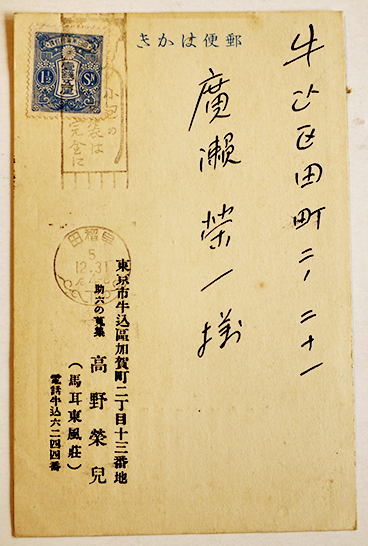 郵便はかき
牛込区田町二ノ二十一
廣瀬榮一様
1½ Sn
小包の
包装は
完全に
早稲田
5
12.31
東京市牛込區加賀町二丁目十三番地
助六の蒐集
高野榮兒
(馬耳東風荘)
電話牛込六二四四番